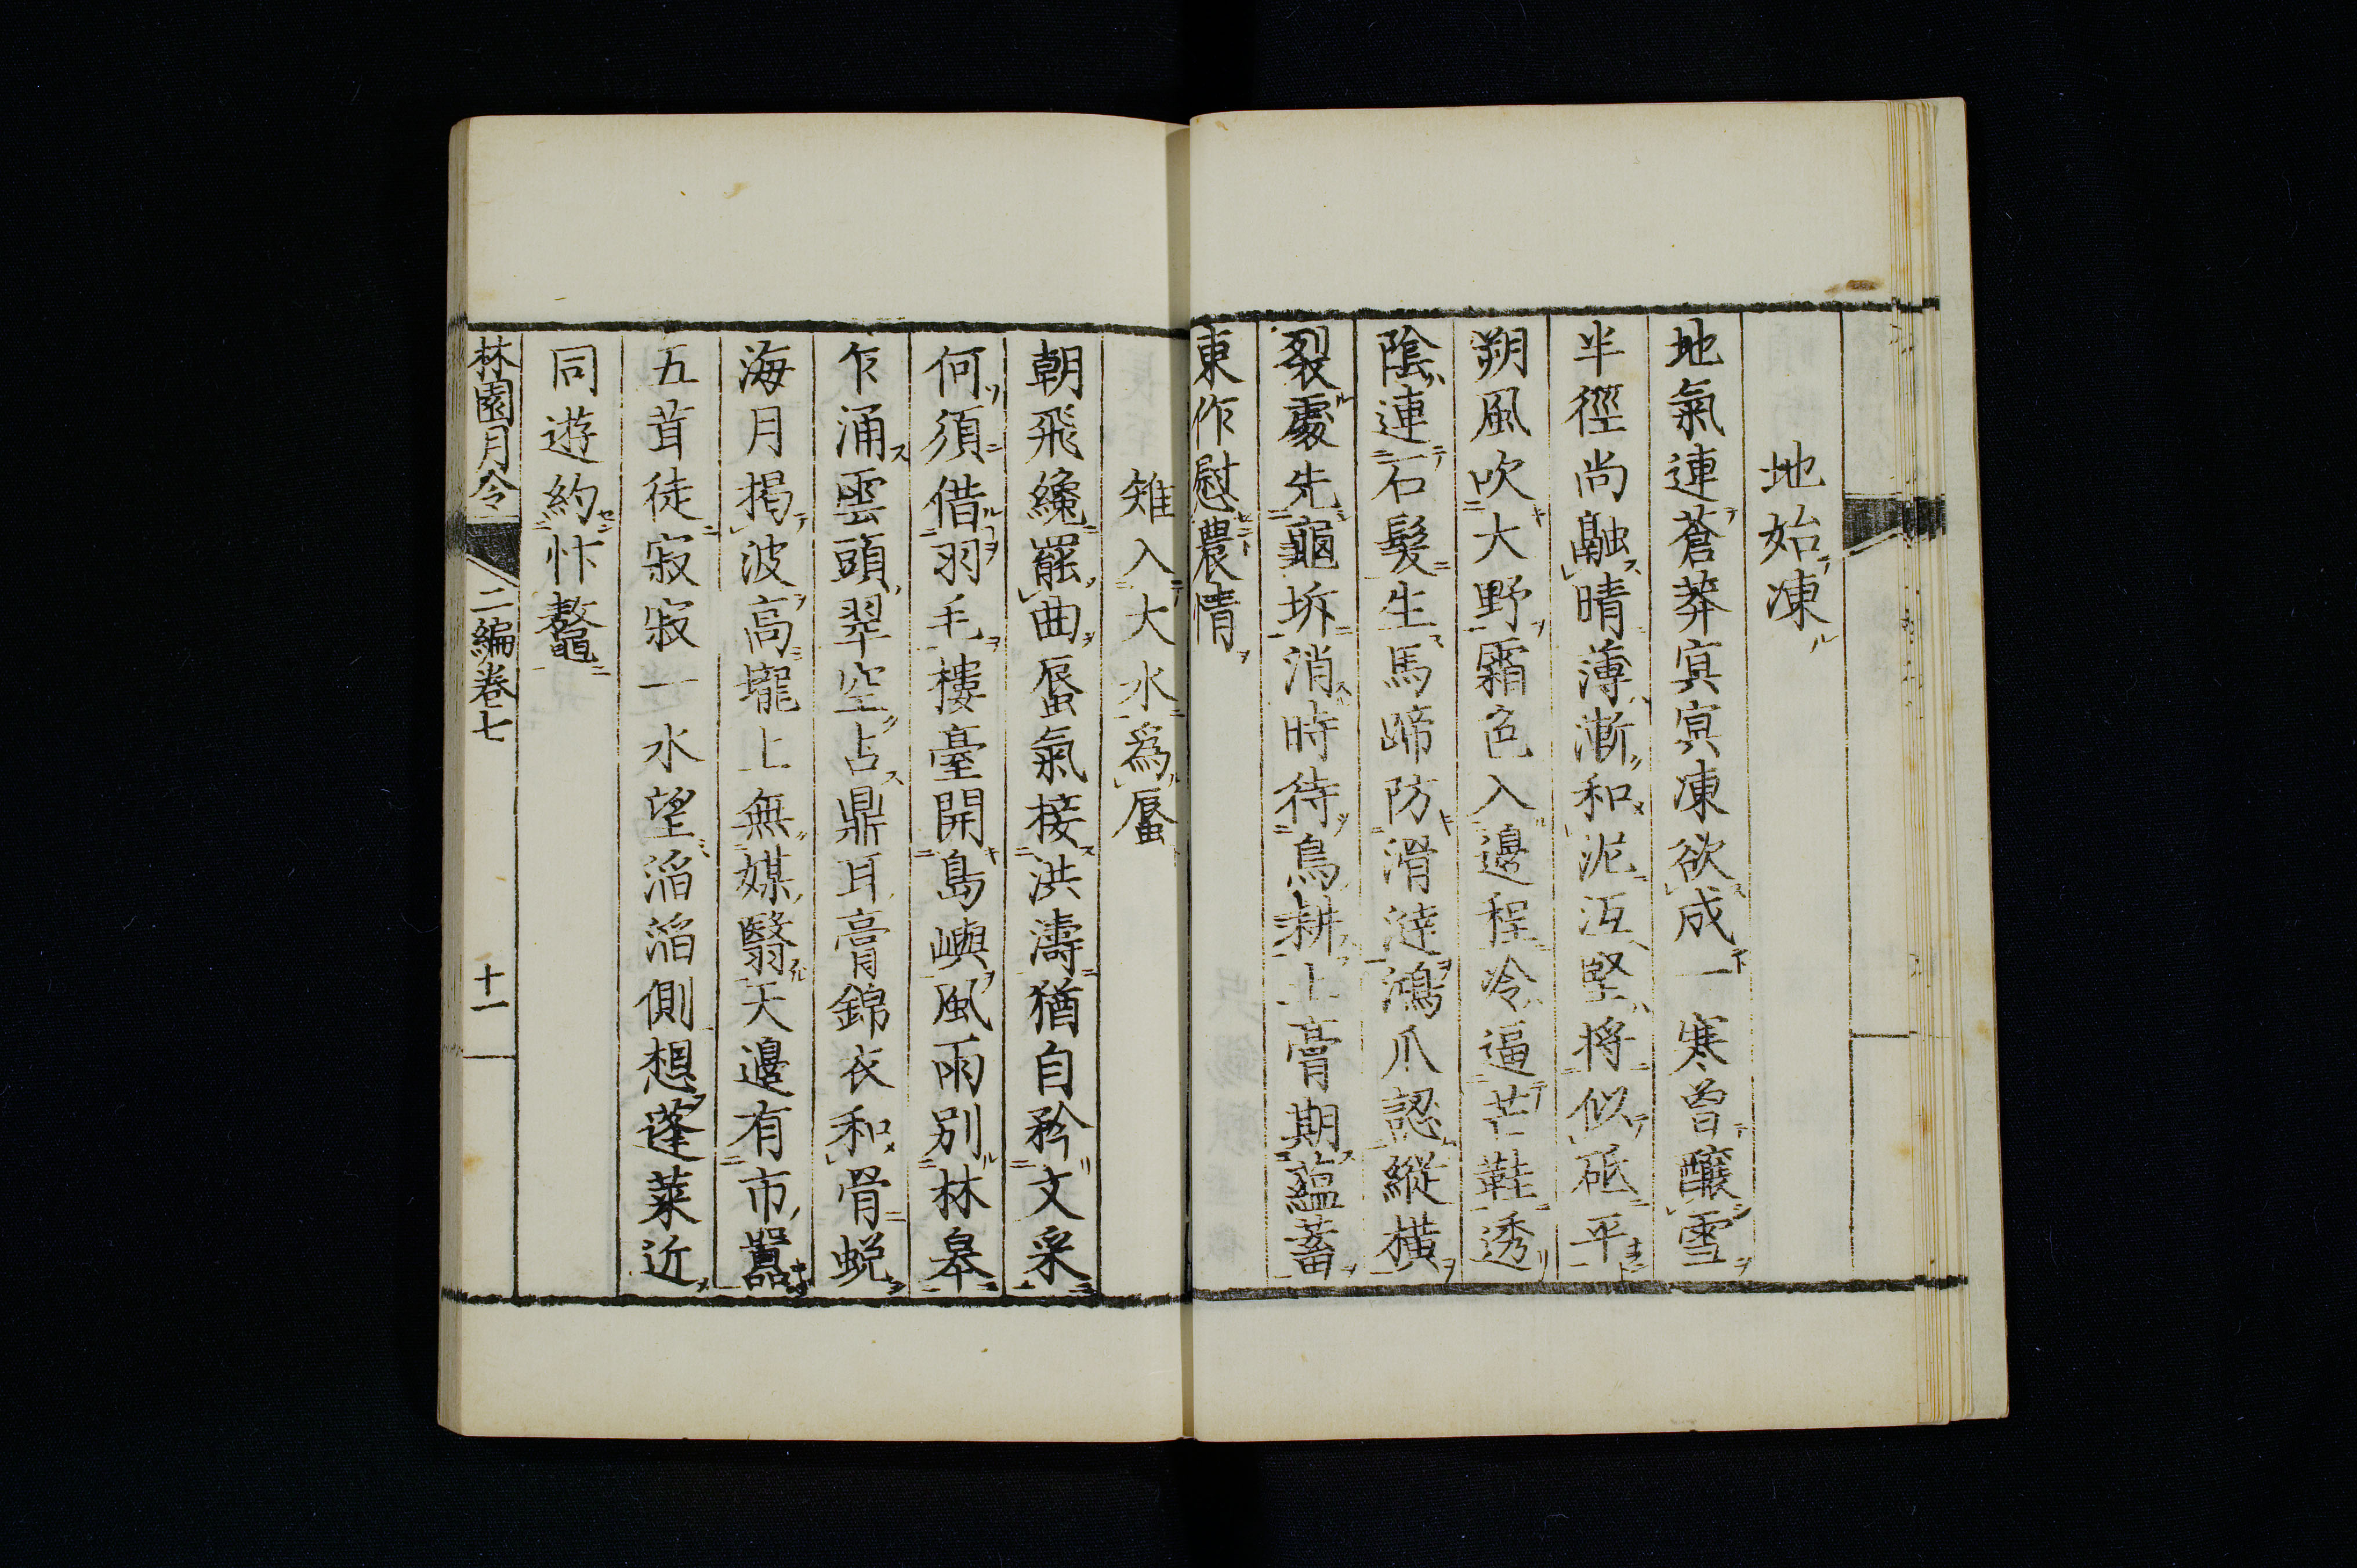 地始凍
地氣連蒼莽冥冥凍欲成一寒曾釀雪
半徑尚融晴薄漸和泥沍堅將似砥平
朔風吹大野霜色入邊程冷逼芒鞋透
陰連石髮生馬蹄防滑澾鴻爪認縱橫
裂處先龜坼消時待鳥耕土膏期蘊蓄
東作慰農情
雉入大水爲蜃
朝飛纔罷曲蜃氣接洪濤猶自矜文采
何須借羽毛樓臺開島嶼風雨別林皐
乍涌雲頭翠空占鼎耳膏錦衣和骨蛻
海月揭波高壠上無媒翳天邊有市囂
五茸徒寂寂一水望滔滔側想蓬萊近
同遊約忭鼇
林園月令 二編卷七 十一